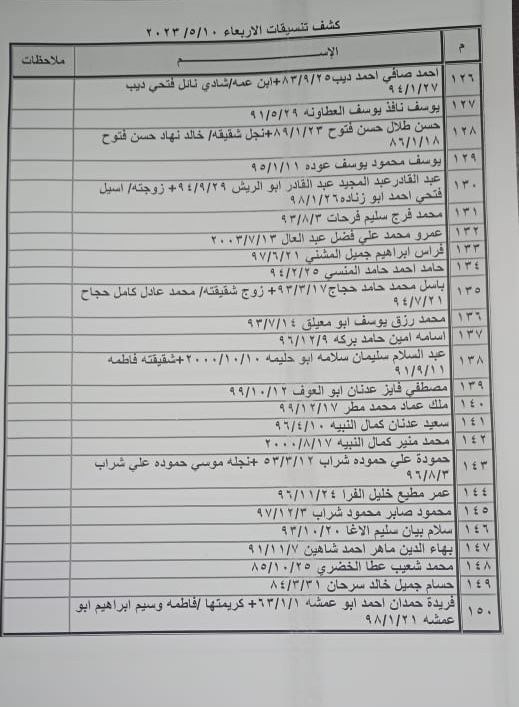 كشف تنسيقات الاربعاء ٢٠٢٣/٥/١٠
م الإســـــــم ملاحظات
١٢٦ احمد صافي احمد ديب٨٣/٩/٢٥+ابن عمه/شادي نائل فتحي ديب
٩٤/١/٢٧
١٢٧ يوسف نافذ يوسف العطاونه ٩١/٥/٢٩
١٢٨ حسن طلال حسن فتوح ٨٩/١/٢٣+نجل شقيقه/ خالد نهاد حسن فتوح
٨٦/١/١٨
١٢٩ يوسف محمود يوسف عوده ٩٥/١/١١
١٣٠ عبد القادر عبد المجيد عبد القادر ابو الريش ٩٤/٩/٢٩+ زوجته/ اسيل
فتحي احمد ابو زناده٩٨/١/٢٦
١٣١ محمد فرج سليم فرحات ٩٣/٨/٣
١٣٢ عمرو محمد علي فضل عبد العال ٢٠٠٣/٧/١٣
١٣٣ فراس ابراهيم جميل المشني ٩٧/٦/٢١
١٣٤ حامد احمد حامد المنسي ٩٤/٢/٢٥
١٣٥ باسل محمد حامد حجاج٩٣/٣/١٧+ زوج شقيقته/ محمد عادل كامل حجاج
٩٤/٧/٢١
١٣٦ محمد رزق يوسف ابو معيلق ٩٣/٧/١٤
١٣٧ اسامه امين حامد بركه ٩٦/١٢/٩
١٣٨ عبد السلام سليمان سلامه ابو حليمه ٢٠٠٠/١٠/١٠+شقيقته فاطمه
٩١/٩/١١
١٣٩ مصطفي فايز عدنان ابو العوف ٩٩/١٠/١٢
١٤٠ ملك عماد محمد مطر ٩٩/١٢/١٧
١٤١ سعيد عدنان كمال النبيه ٩٦/٤/١٠
١٤٢ محمد منير كمال النبيه ٢٠٠٠/٨/١٧
١٤٣ حمودة علي حموده شراب ٥٣/٣/١٢ +نجله موسي حموده علي شراب
٩٦/٨/٣
١٤٤ عمر مطيع خليل الفرا ٩٦/١١/٢٤
١٤٥ محمود صابر محمود شراب ٩٧/١٢/٣
١٤٦ سلام بيان سليم الاغا ٩٣/١٠/٢٠
١٤٧ بهاء الدين ماهر احمد شاهين ٩١/١١/٧
١٤٨ محمد شعيب عطا الخضري ٨٥/١٠/٢٥
١٤٩ حسام جميل خالد سرحان ٨٤/٣/٣١
١٥٠ فريدة حمدان احمد ابو عمشه ٦٣/١/١+ كريمتها /فاطمه وسيم ابراهيم ابو
عمشه ٩٨/١/٢١